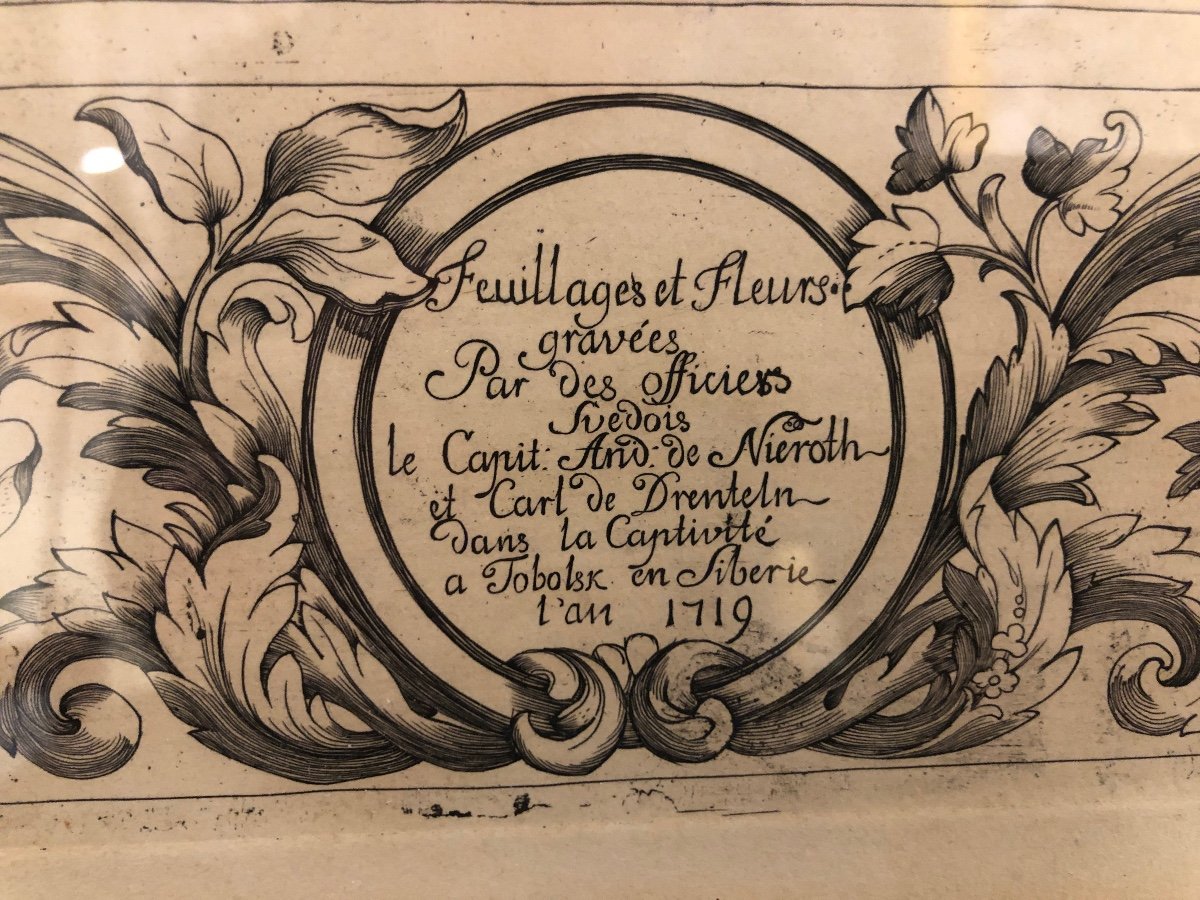 Feuillages et Fleurs
gravées
Par des officiers
Svedois
le Capit: And: de Nieroth
et Carl de Drenteln
dans la Captivité
a Tobolsk en Siberie
l'an 1719